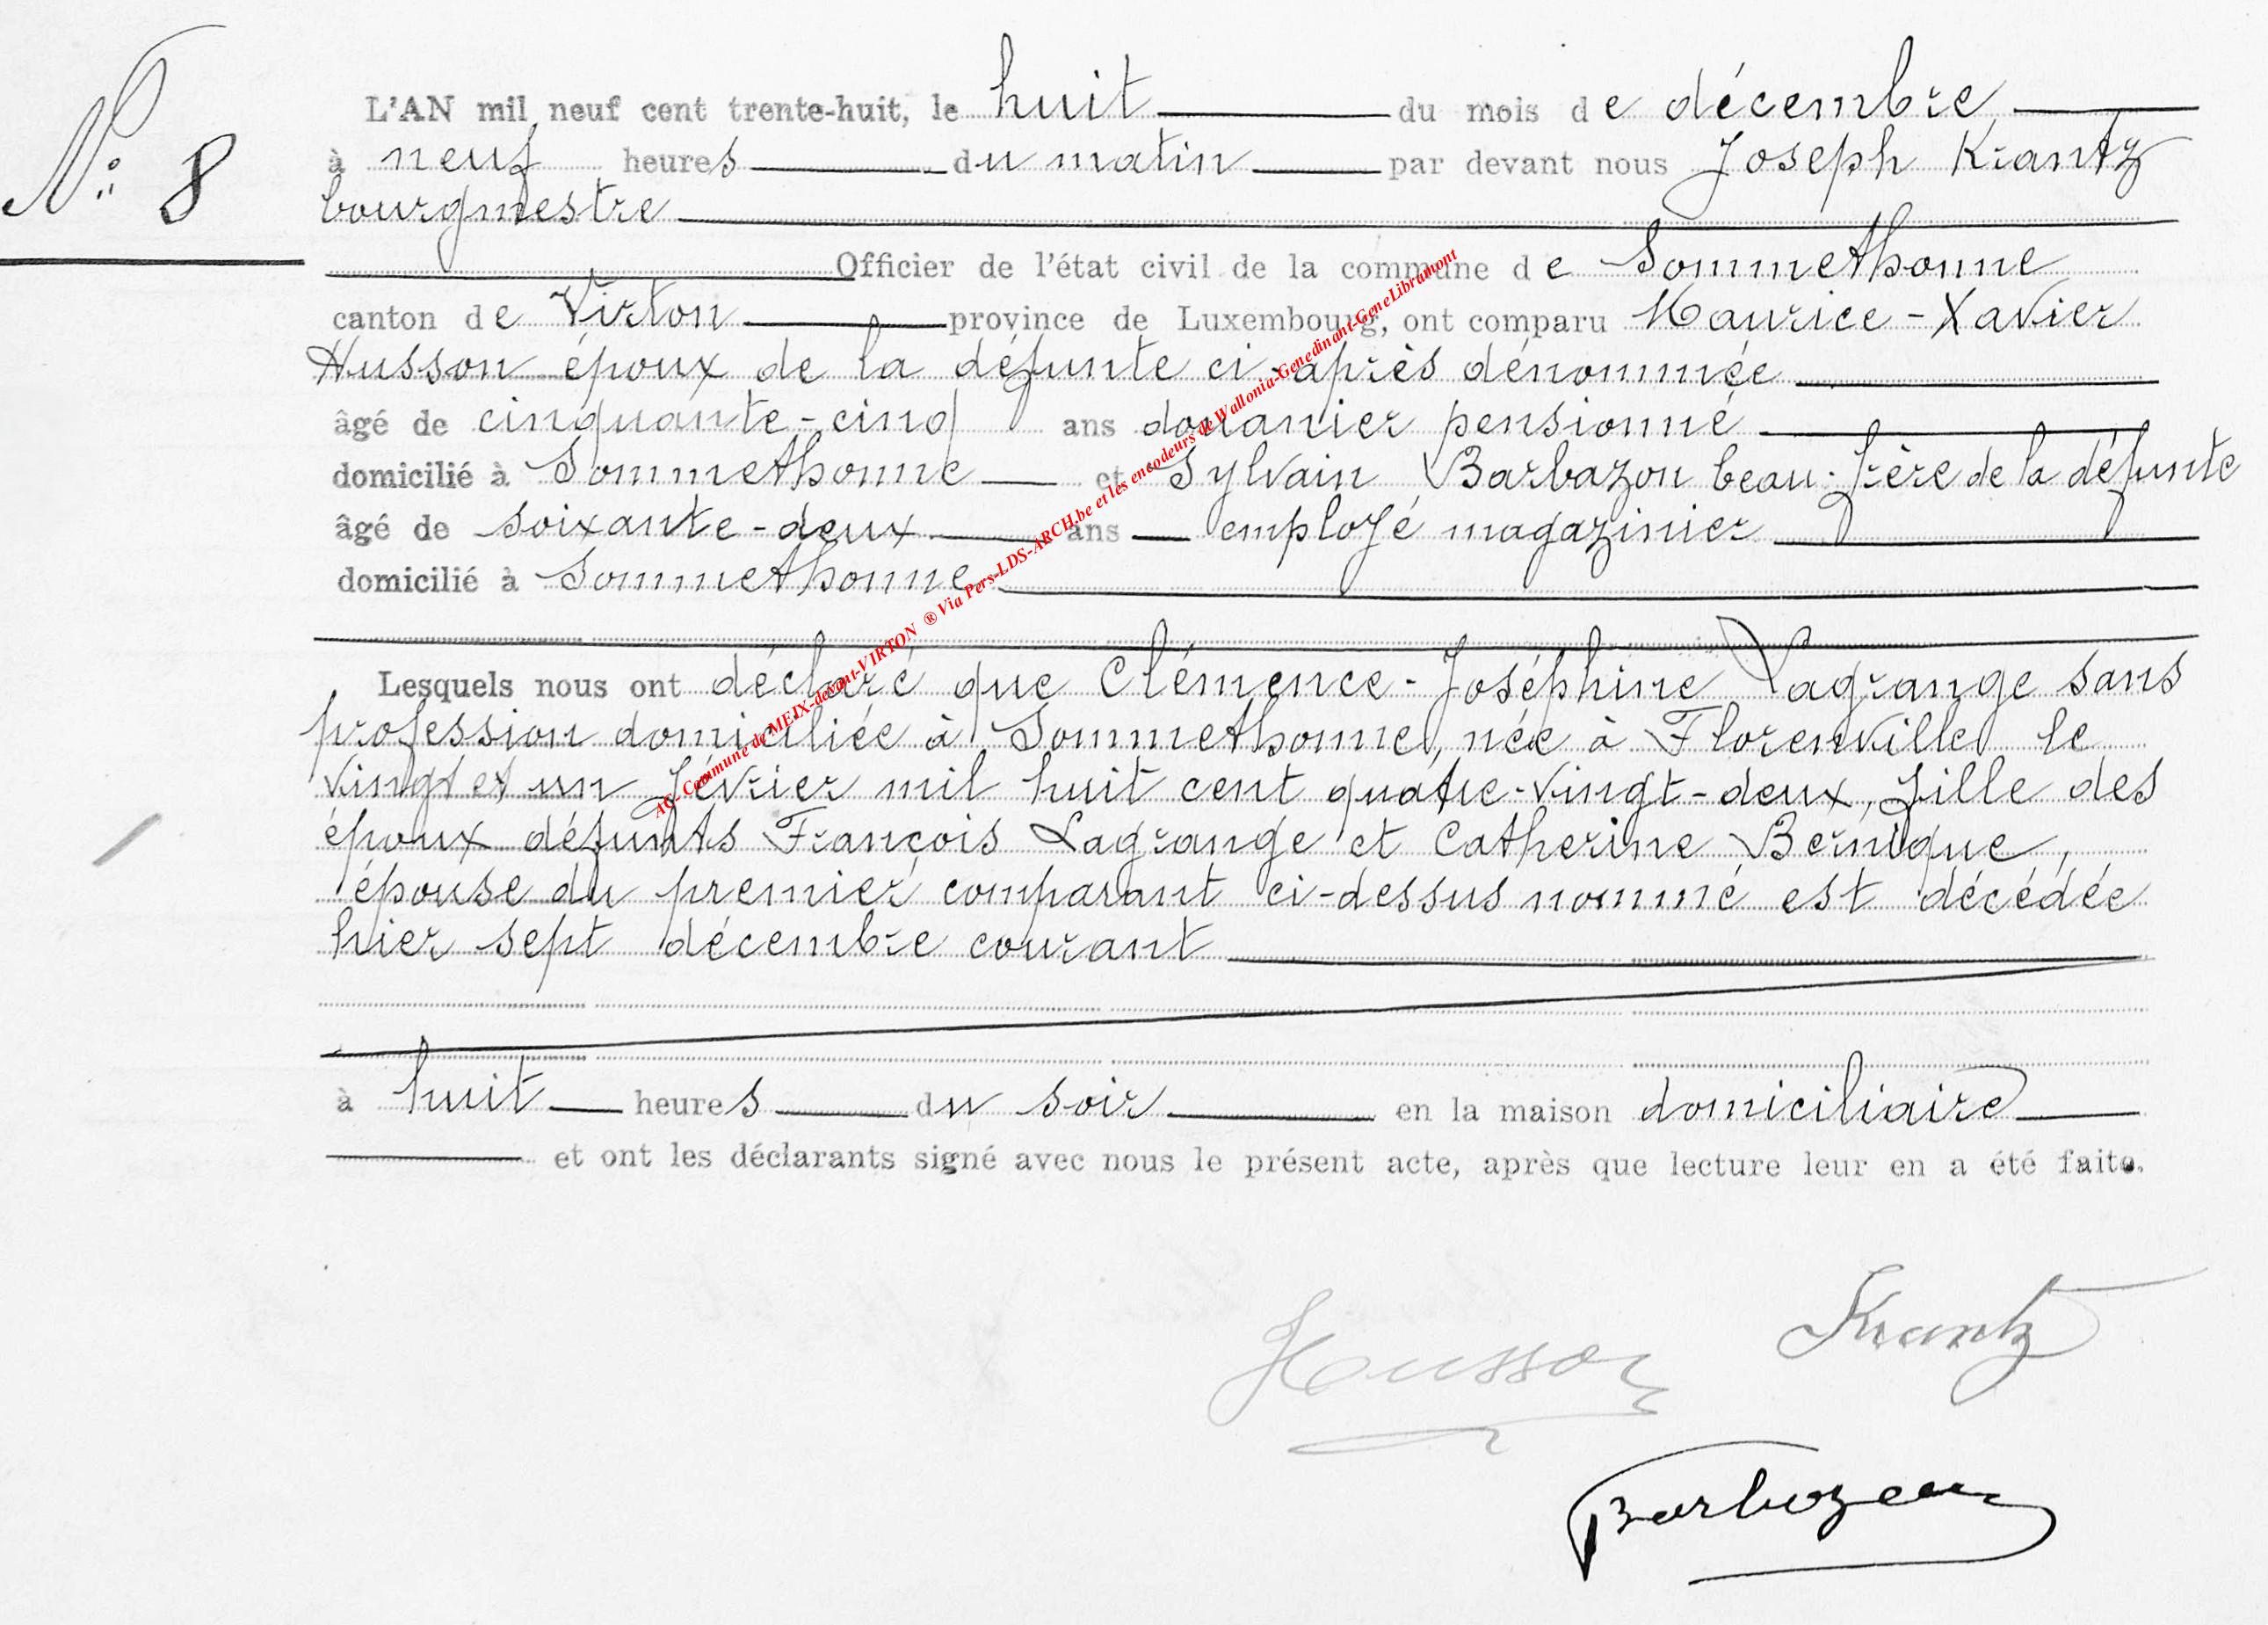 N° 8
L'AN mil neuf cent trente-huit, le huit du mois de décembre
à neuf heures du matin par devant nous Joseph Krantz
bourgmestre
Officier de l'état civil de la commune de Sommethonne
canton de Virton province de Luxembourg, ont comparu Maurice-Xavier
Husson époux de la défunte ci-après dénommée
âgé de cinquante-cinq ans douanier pensionné
domicilié à Sommethonne et Sylvain Barbazon beau-frère de la défunte
âgé de soixante-deux ans employé magazinier
domicilié à Sommethonne
Lesquels nous ont déclaré que Clémence-Joséphine Lagrange sans
profession domiciliée à Sommethonne, née à Florenville le
vingt et un février mil huit cent quatre-vingt-deux, fille des
époux défunts François Lagrange et Catherine Bernique,
épouse du premier comparant ci-dessus nommé est décédée
hier sept décembre courant
à huit heures du soir en la maison domiciliaire
et ont les déclarants signé avec nous le présent acte, après que lecture leur en a été faite.
Krantz
Husson
Barbazon
AC- Commune de MEIX-devant-VIRTON ® Via Pers-LDS-ARCH.be et les encodeurs de Wallonia-Genedinant-GeneLibramont